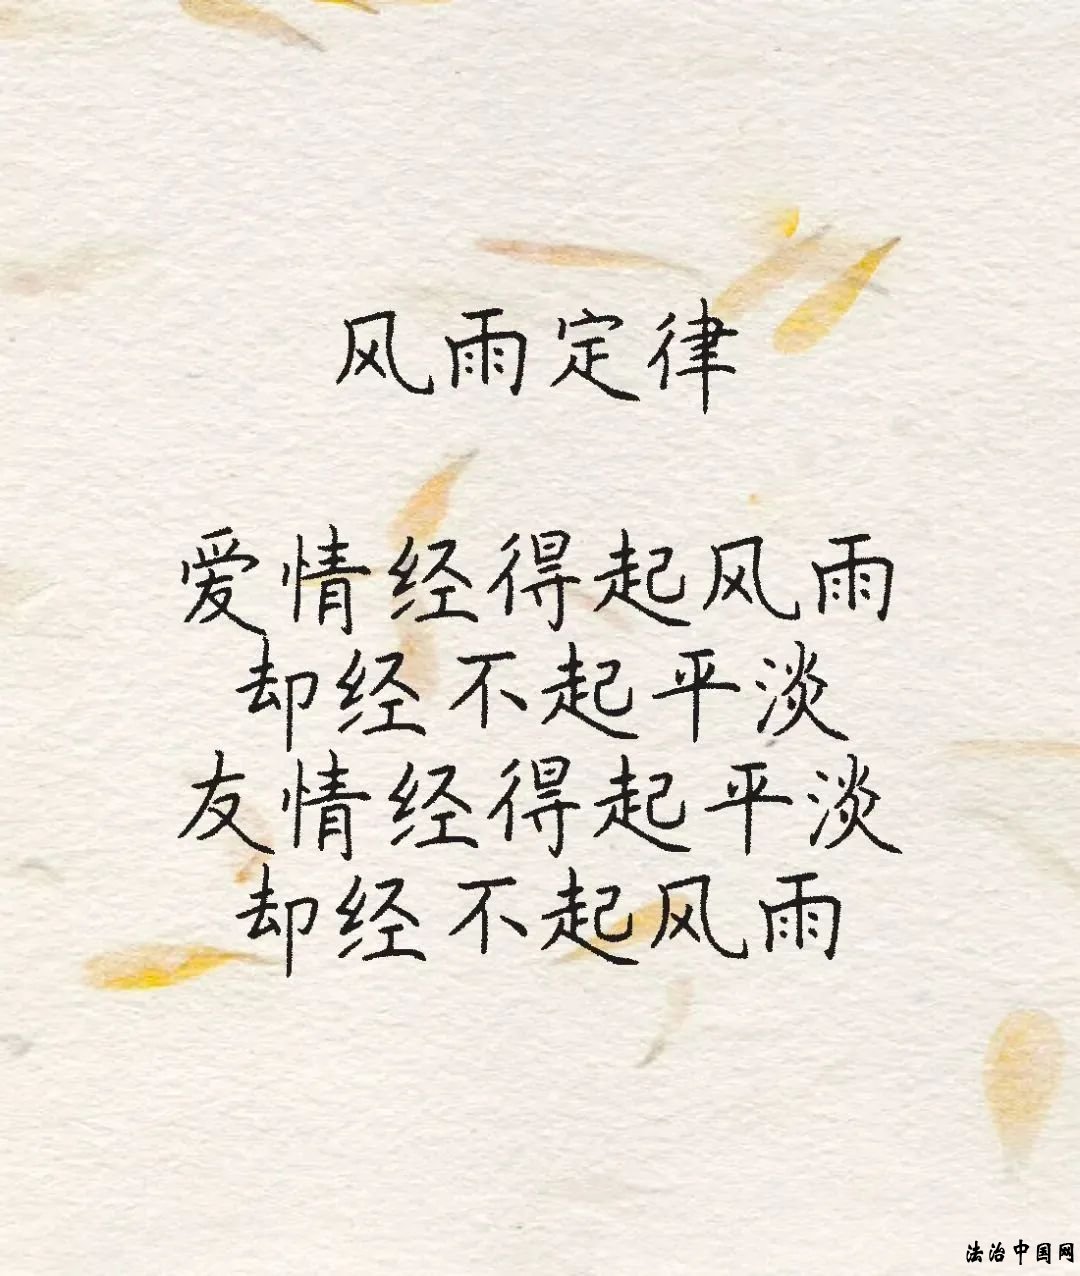 风雨定律
爱情经得起风雨
却经不起平淡
友情经得起平淡
却经不起风雨
法治中国网